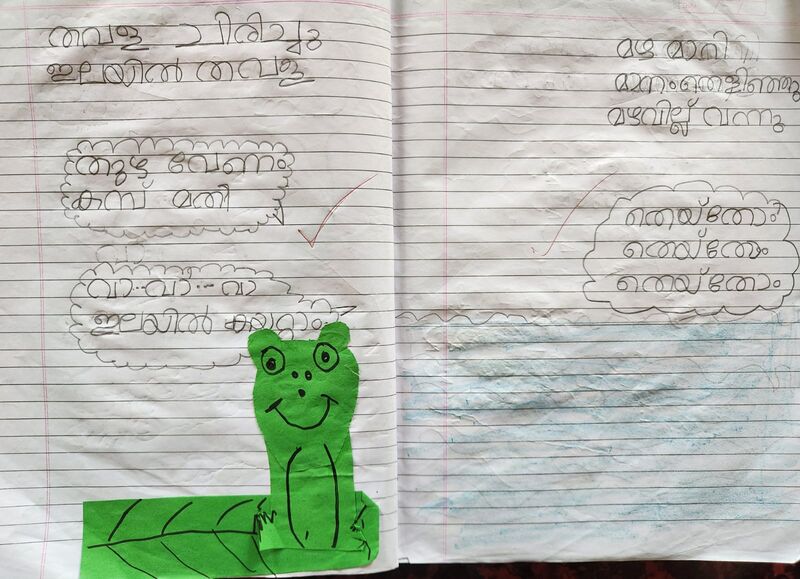 തവള ചിരിച്ചു
ഇലയിൽ തവള
തുഴ വേണം
കമ്പ് മതി
വാ..വാ..വാ
ഇലയിൽ കയറാം
മഴ മാറി
മാനംതെളിഞ്ഞു
മഴവില്ല് വന്നു
തെയ്തോം
തെയ്തോം
തെയ്തോം